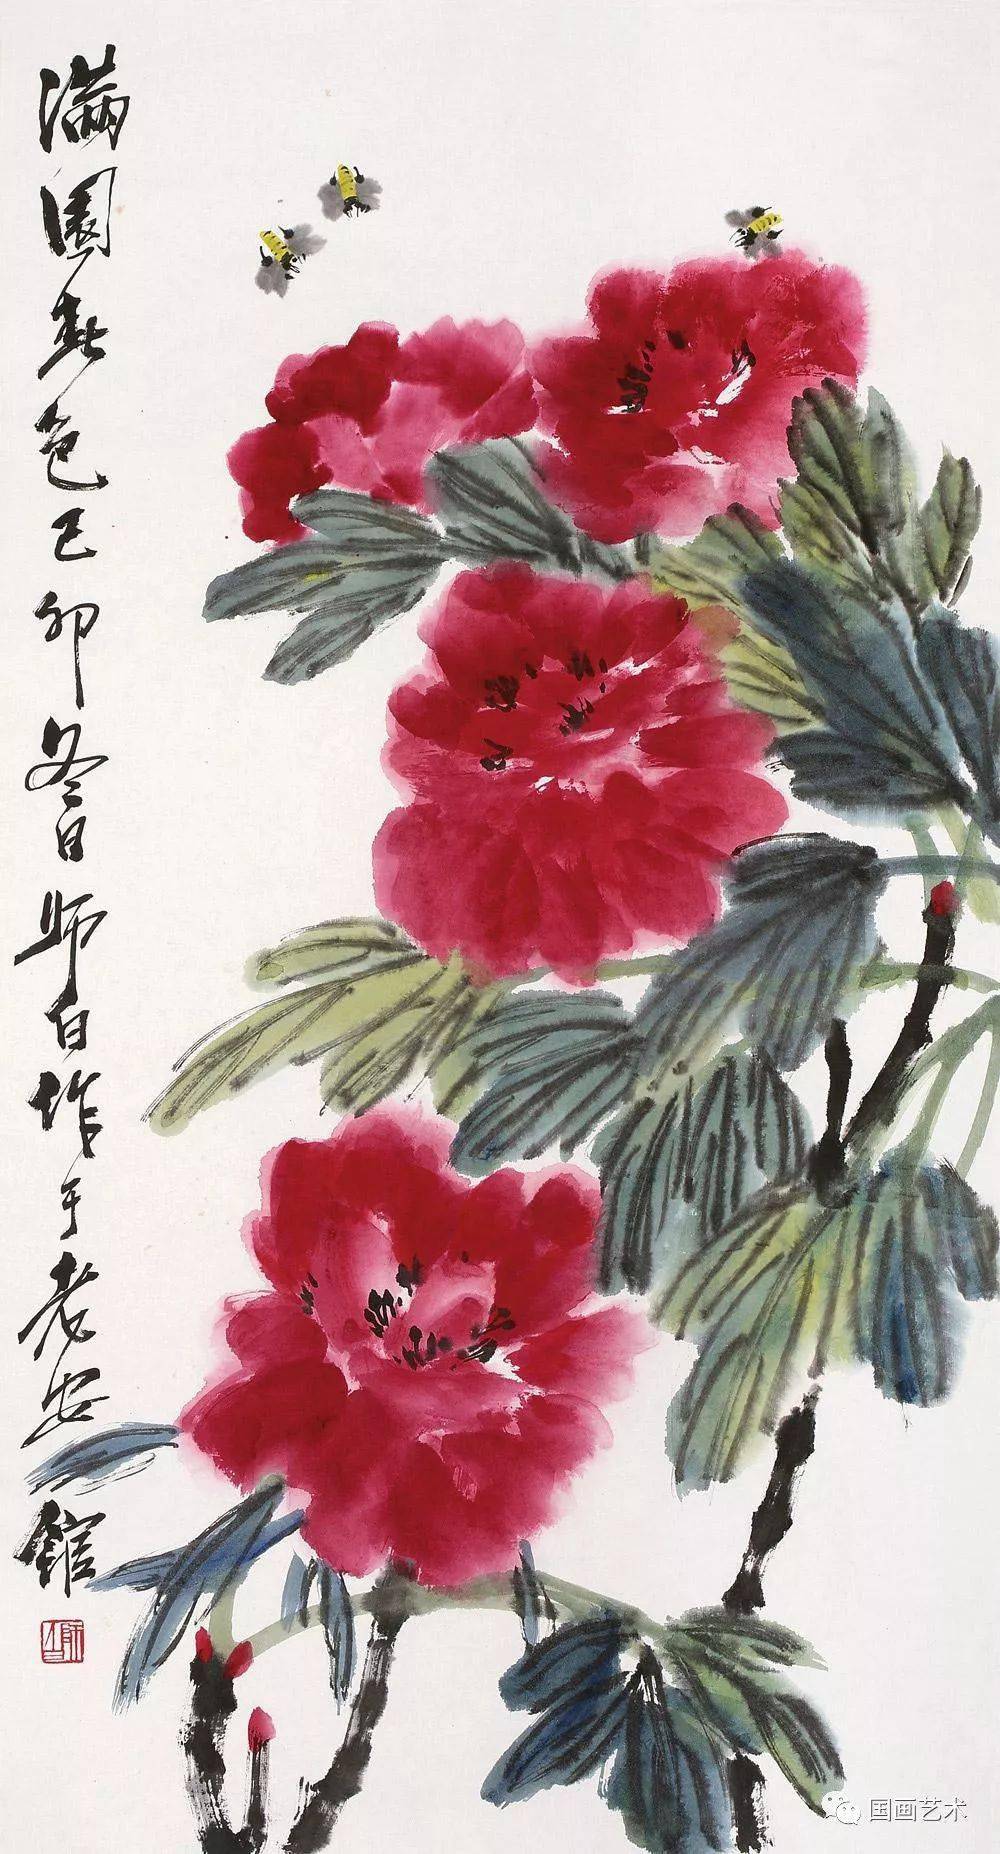 满园春色己卯冬日师白作于老安馆
师白
国画艺术